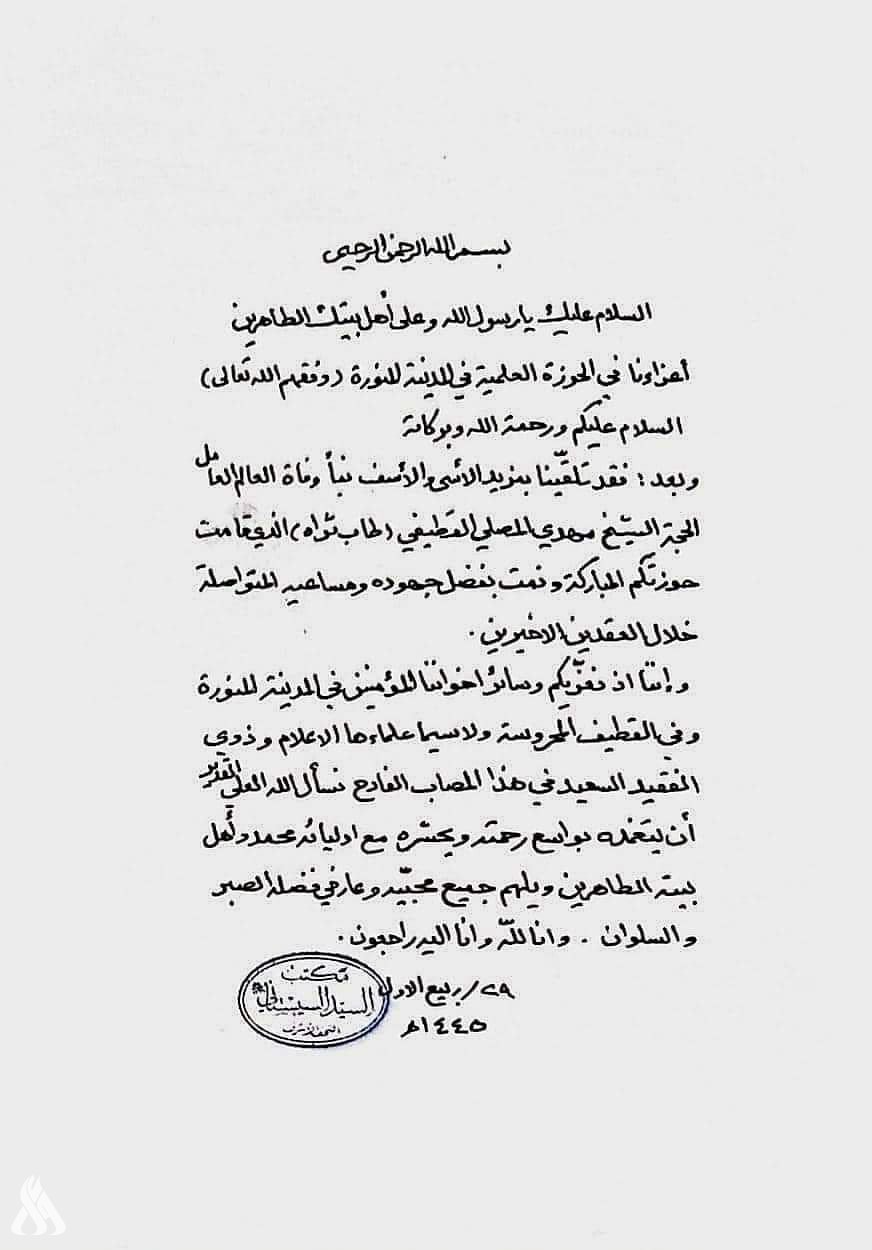 بسم الله الرحمن الرحيم
السلام عليك يا رسول الله وعلى أهل بيتك الطاهرين
أعزاءنا في الحوزة العلمية في المدينة المنورة (وفقهم الله تعالى)
السلام عليكم ورحمة الله وبركاته
وبعد: فقد تلقّينا بمزيد الأسى والأسف نبأ وفاة العالم العامل
الحجة الشيخ مهدي المصلي القطيفي (طاب ثراه) الذي قامت
حوزتكم المباركة ونمت بفضل جهوده ومساعيه المتواصلة
خلال العقدين الاخيرين.
وإننا اذ نعزّيكم وسائر اخواننا المؤمنين في المدينة المنورة
وفي القطيف المحروسة ولاسيما علماءها الاعلام وذوي
الفقيد السعيد في هذا المصاب الفادح نسأل الله العلي القدير
أن يتغمده بواسع رحمته ويحشره مع اوليائه محمد وأهل
بيته الطاهرين ويلهم جميع محبّيه وعارفي فضله الصبر
والسلوان. وانا للّه وانا اليه راجعون.
٢٩/ربيع الاول
١٤٤٥هـ
مكتب
السيد السيستاني
النجف الاشرف